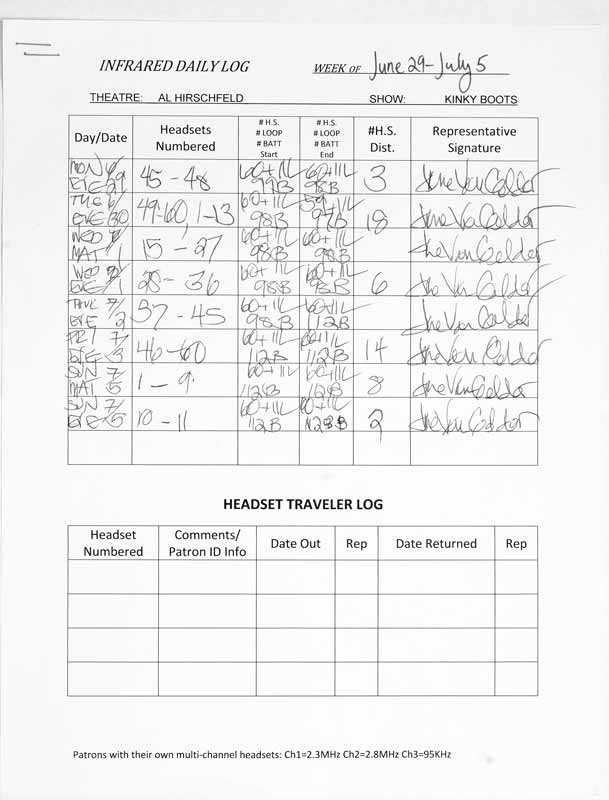 INFRARED DAILY LOG WEEK OF June 29 - July 5
THEATRE: AL HIRSCHFELD SHOW: KINKY BOOTS
Day/Date Headsets Numbered # H.S. # LOOP # BATT Start # H.S. # LOOP # BATT End #H.S. Dist. Representative Signature
MON 6/ EVE 29 45 - 48 60+11L 99B 60+11L 98B 3
TUE 6/ EVE 30 49-60, 1-13 60+11L 98B 11L 97B 18
WED 7/ MAT 1 15 - 27 60+11L 98B 60+11L 98B
WED 7/ EVE 1 28 - 36 60+11L 98B 60+11L 98B 6
THUR 7/ EVE 2 37 - 45 60+11L 98B 60+11L 112B
FRI 7/ EVE 3 46-60 60+11L 112B 60+11L 112B 14
SUN 7/ MAT 5 1 - 9 60+11L 112B 60+11L 112B 8
SUN 7/ EVE 5 10 - 11 60+11L 112B 60+11L 2
HEADSET TRAVELER LOG
Headset Numbered Comments/ Patron ID Info Date Out Rep Date Returned Rep
Patrons with their own multi-channel headsets: Ch1=2.3MHz Ch2=2.8MHz Ch3=95KHz